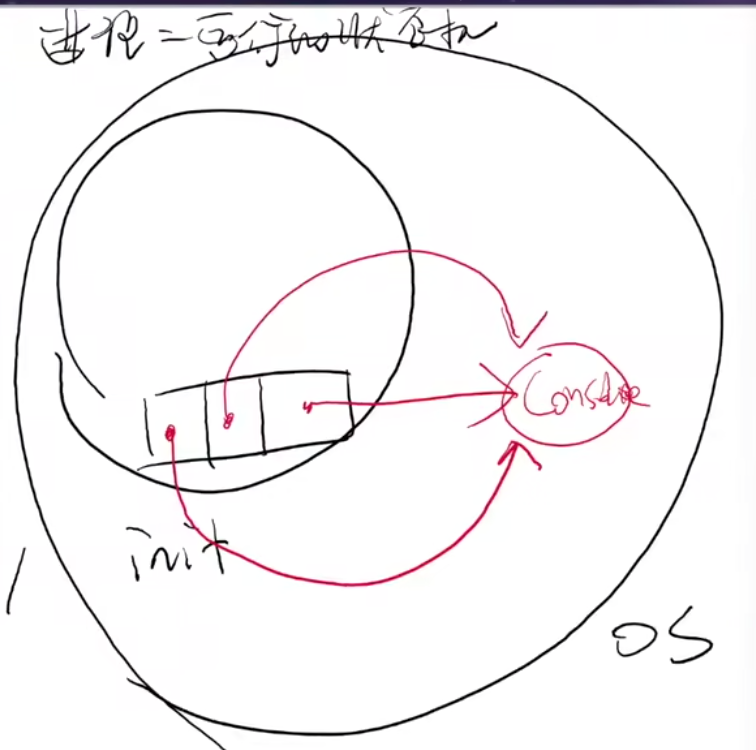 进程=运行的状态机
Console
init
OS